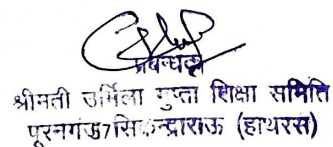 प्रबन्धक
श्रीमती उर्मिला गुप्ता शिक्षा समिति
पूरनगंज सिकन्द्राराऊ (हाथरस)